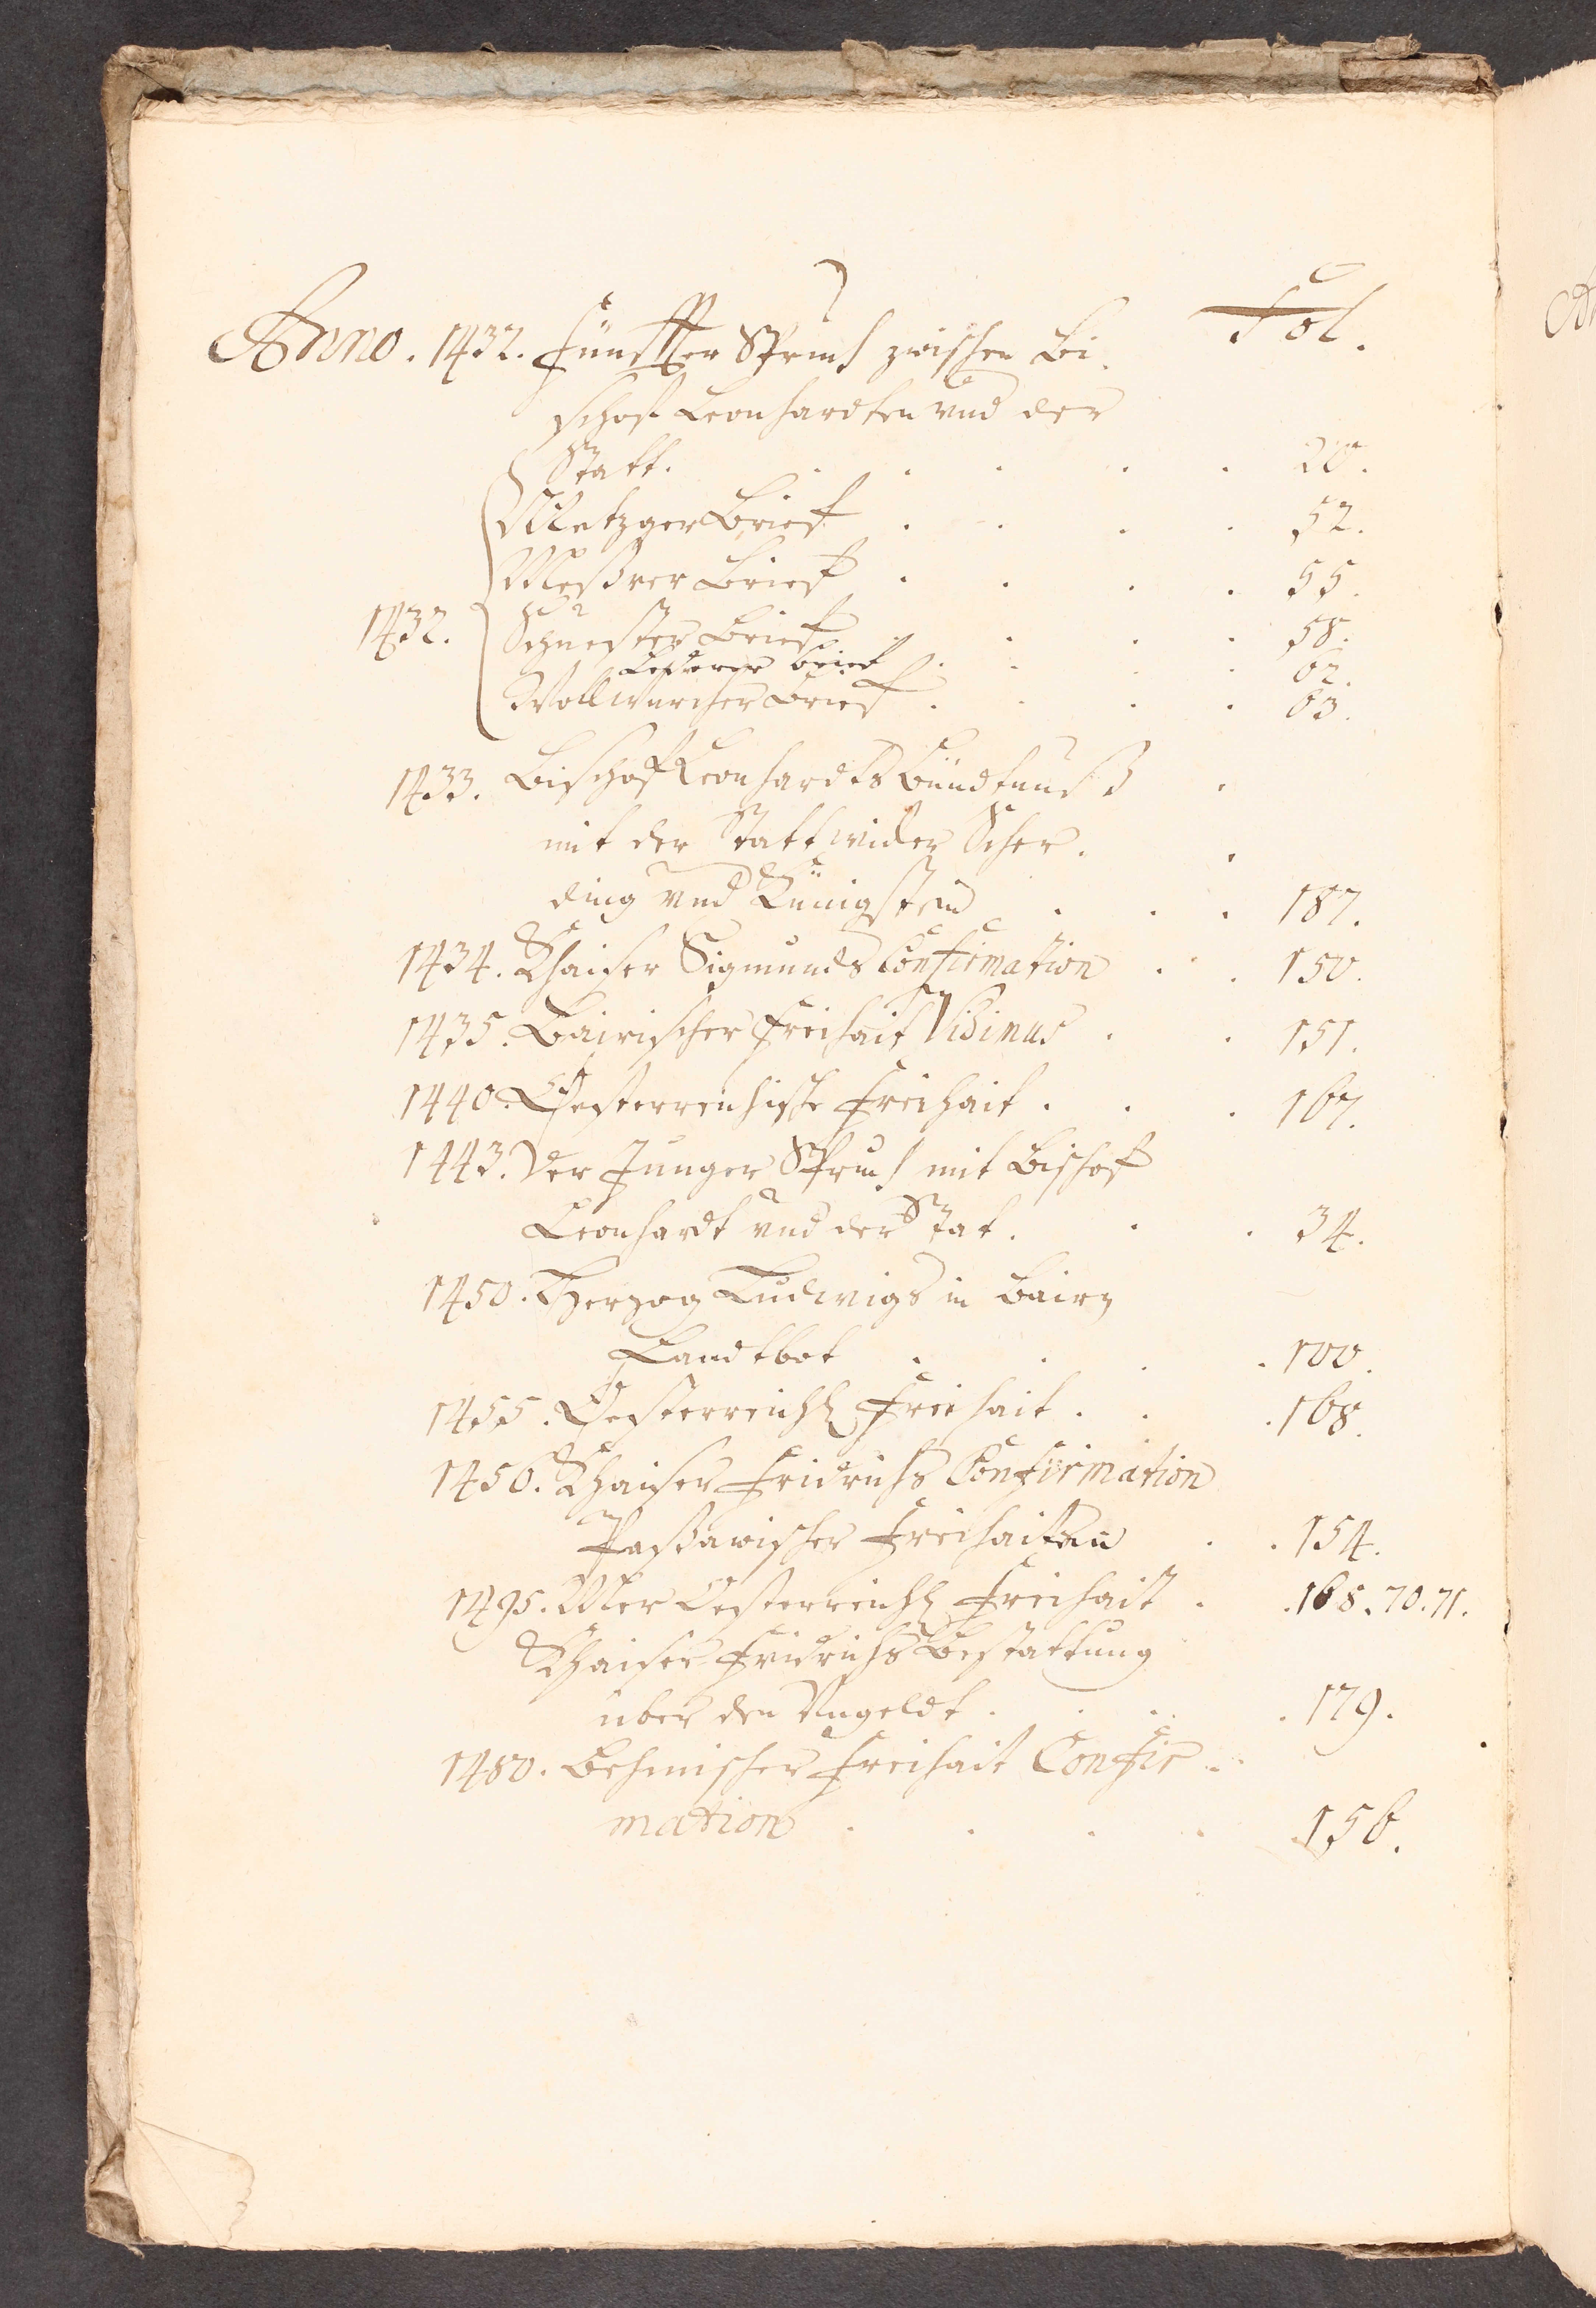 Fol.
Anno. 1432. Fünffter Spruch zwischen Bi.
schof Leonhardten vnd der
Statt. . . . . . 20.
Metzger Brief . . . . 52.
Meßrer Brief . . . . 55.
1432. Schuester Brief . . . . 58.
Lederer brief . . . . 62.
Wollwürcher Brief . . . . 63.
1433. Bischof Leonhardts Bündtnuß .
mit der Statt wider Scher. .
ding vnd Künigstein . . . 187.
1434. Khaiser Sigmunds Confirmation . . 150.
1435. Bairischer Freihait Vidimus . . 151.
1440. Oesterreichische Freihait . . . 167.
1443. Der Junger Spruch mit Bischof
Leonhardt vnd der Stat. . . 34.
1450. Herzog Ludwigs in Bairn
Landtbot . . . . 100.
1455. Oesterreichl Freihait . . . 168.
1456. Khaiser Fridrichs Confirmation
Paßawischer Freihaiten . . 154.
1495. Mer Oesterreichl Freihait . . 168. 70. 71.
Khaiser Fridrichs Bestattung
über den Vngeldt . . . . 179.
1480. Behmischer Freihait Confir..
mation . . . . . 156.